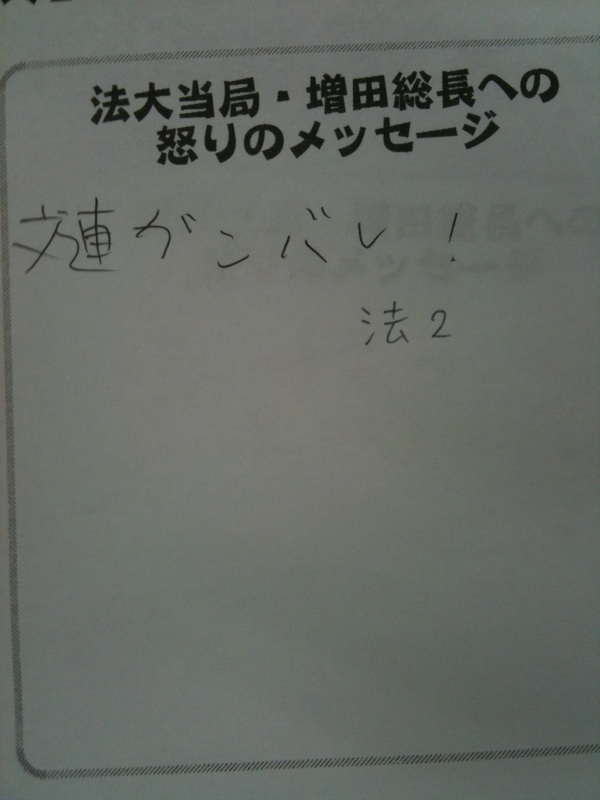 法大当局・増田総長への
怒りのメッセージ
文連ガンバレ!
法2